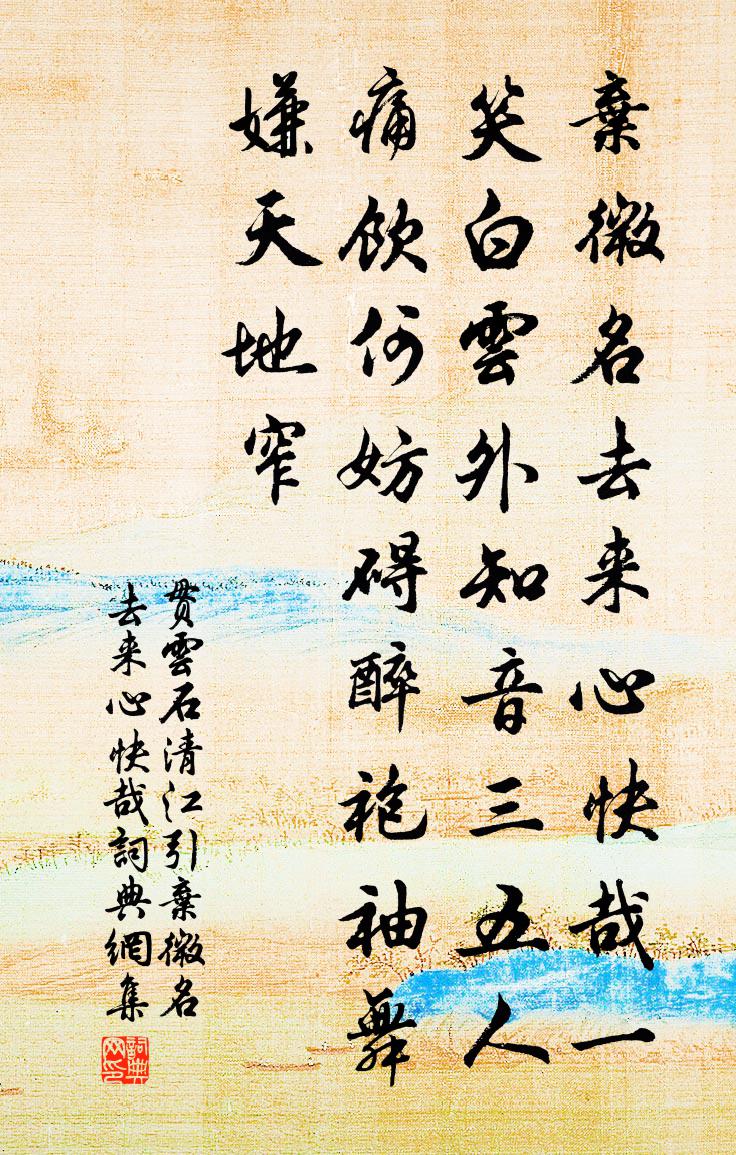 棄微名去来心快哉一
笑白雲外知音三五人
痛飲何妨碍醉袍袖舞
嫌天地窄
贯雲石清江引棄微名
去来心快哉詞典網集
詞典
网印